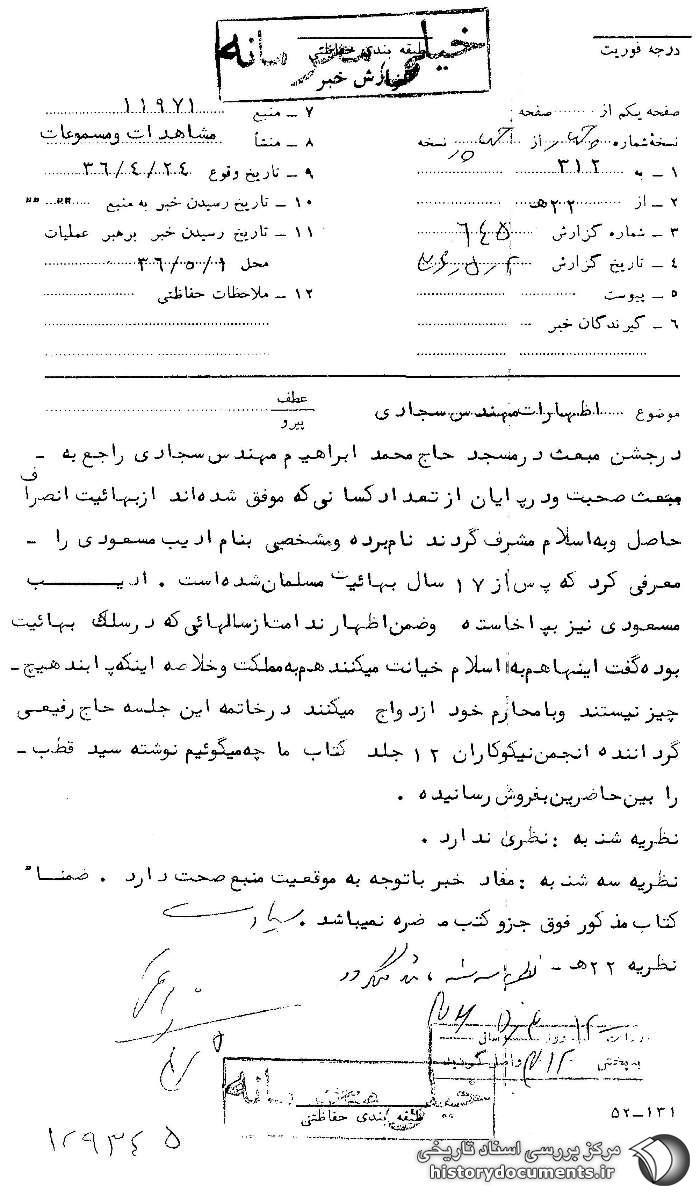 خیلی محرمانه
طبقه بندی حفاظتی
گزارش خبر
درجه فوریت
صفحه یکم از صفحه
نسخهٔ شماره از نسخه
۱ ـ به ۳۱۲
۲ ـ از ۲۲هـ
۳ ـ شماره گزارش ۶۴۵
۴ ـ تاریخ گزارش
۵ ـ پیوست
۶ ـ گیرندگان خبر
۷ ـ منبع ۱۱۹۷۱
۸ ـ منشأ مشاهدات ومسموعات
۹ ـ تاریخ وقوع ۳۶/۴/۲۴
۱۰ ـ تاریخ رسیدن خبر به منبع " "
۱۱ ـ تاریخ رسیدن خبر برهبر عملیات
محل ۳۶/۵/۱
۱۲ ـ ملاحظات حفاظتی
موضوع اظهارات مهندس سجادی
عطف
پیرو
درجشن مبعث درمسجد حاج محمد ابراهیم مهندس سجادی راجع به ـ
مبعث صحبت ودرپایان از تعدادکسانی‌که موفق شده‌اند ازبهائیت انصراف
حاصل وبه‌اسلام مشرف گردند نام‌برده ومشخصی بنام ادیب مسعودی را ـ
معرفی کرد که پس از ۱۷ سال بهائیت مسلمان شده است . ادیب
مسعودی نیز بپاخاسته وضمن اظهار ندامت ازسالهائی‌که درسلک بهائیت
بوده‌گفت اینهاهم‌به‌اسلام خیانت میکنندهم‌به‌مملکت وخلاصه اینکه‌پابندهیچ‌ـ
چیز نیستند وبامحارم خود ازدواج میکنند درخاتمه این جلسه حاج رفیعی
گرداننده انجمن‌نیکوکاران ۱۲ جلد کتاب ما چه‌میگوئیم نوشته سید قطب‌ـ
را بین‌حاضرین‌بفروش رسانیده .
نظریه شنبه : نظری ندارد .
نظریه سه شنبه : مفاد خبر باتوجه به موقعیت منبع صحت دارد . ضمناً
کتاب مذکور فوق جزو کتب مضره نمیباشد .
نظریه ۲۲هـ ـ
به‌بخش ۳۱۲ واصل گردید
خیلی محرمانه
طبقه بندی حفاظتی
۵۲-۱۳۱
۱۲۹۳۴۵
مرکز بررسی اسناد تاریخی
historydocuments.ir